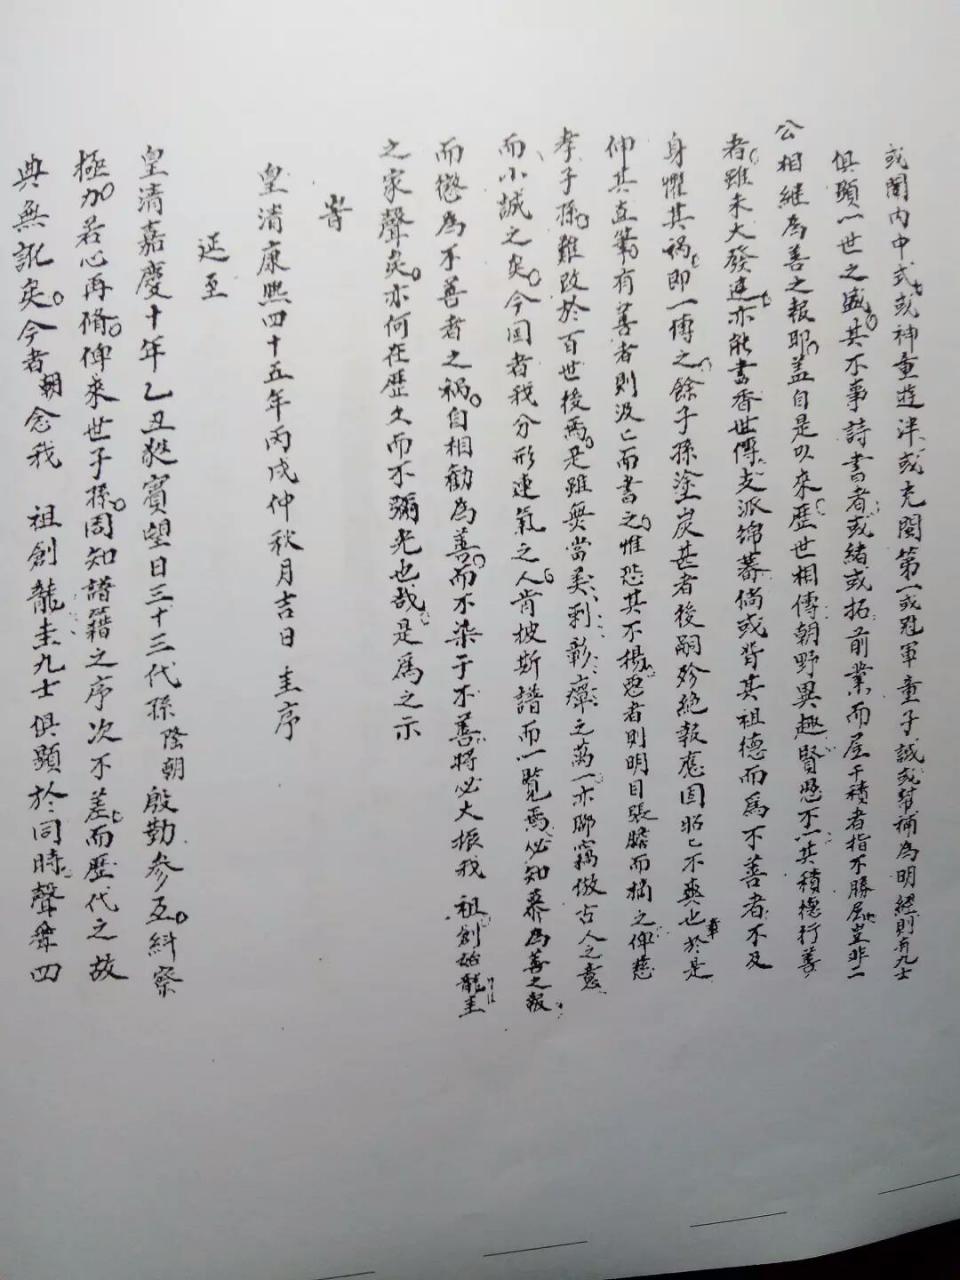 或闈內中式或神童遊泮或充閩第一或冠軍童子試或幫補為明經則有九士
俱顯一世之盛其不事詩書者或緒或拓前業而居千積者指不勝屈豈非二
公相繼為善之報耶蓋自是以來歷世相傳朝野異趣賢愚不一其積德行善
者雖未大發達亦能書香世傳支派綿蕃倘或背其祖德而為不善者不及
身懼其禍即一傳之餘子孫塗炭甚者後嗣殄絕報應固昭昭不爽也於是
伸其直筆有善者則汲汲而書之惟恐其不揚惡者則明目張膽而摘之俾慈
孝子孫難改於百世後焉是雖無當彰癉之萬一亦聊竊倣古人之意
而小誠之矣今回者我分形連氣之人肯披斯譜而一覽焉必知慕為善之報
而懲為不善者之禍自相勸為善而不染于不善將必大振我祖創始龍圭
之家聲矣亦何在歷久而不彌光也哉是為之示
旹
皇清康熙四十五年丙戌仲秋月吉日圭序
延至
皇清嘉慶十年乙丑蕤賓望日三十三代孫陰朝殷勤參互糾察
極力若心再脩俾來世子孫周知譜籍之序次不差而歷代之故
典無訛矣今者朝念我 祖創龍圭九士俱顯於同時聲聲四